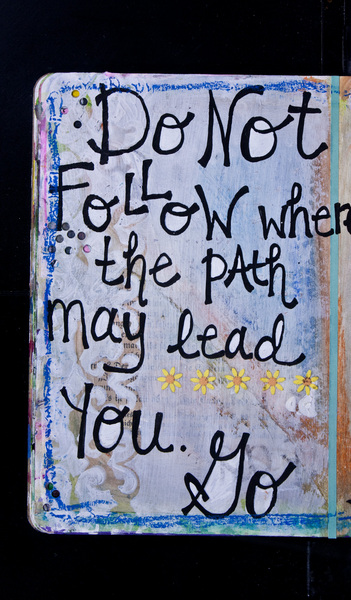 Do Not
FoLLoW wher
the pAth
may lead
You. Go